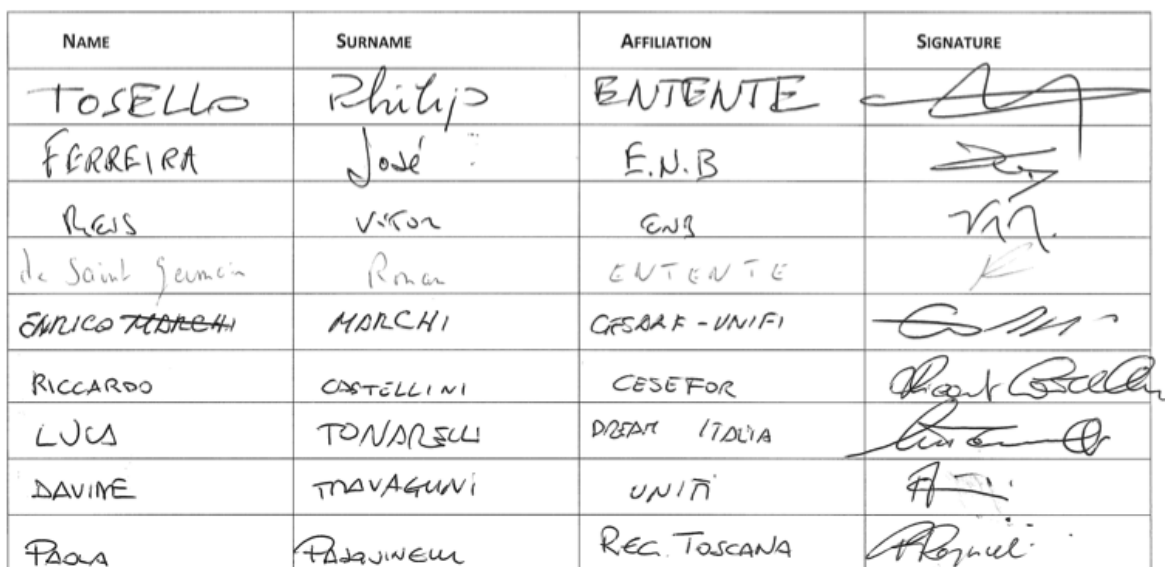 NAME SURNAME AFFILIATION SIGNATURE
TOSELLO Philip ENTENTE
FERREIRA José E.N.B
REIS VITOR ENB
de Saint Germain Roman ENTENTE
ENRICO MARCHI MARCHI CESARF - UNIFI
RICCARDO CASTELLINI CESEFOR
LUCA TONARELLI DREAM ITALIA
DAVIDE UNIFI
PAOLA PASQUINELLI REG. TOSCANA